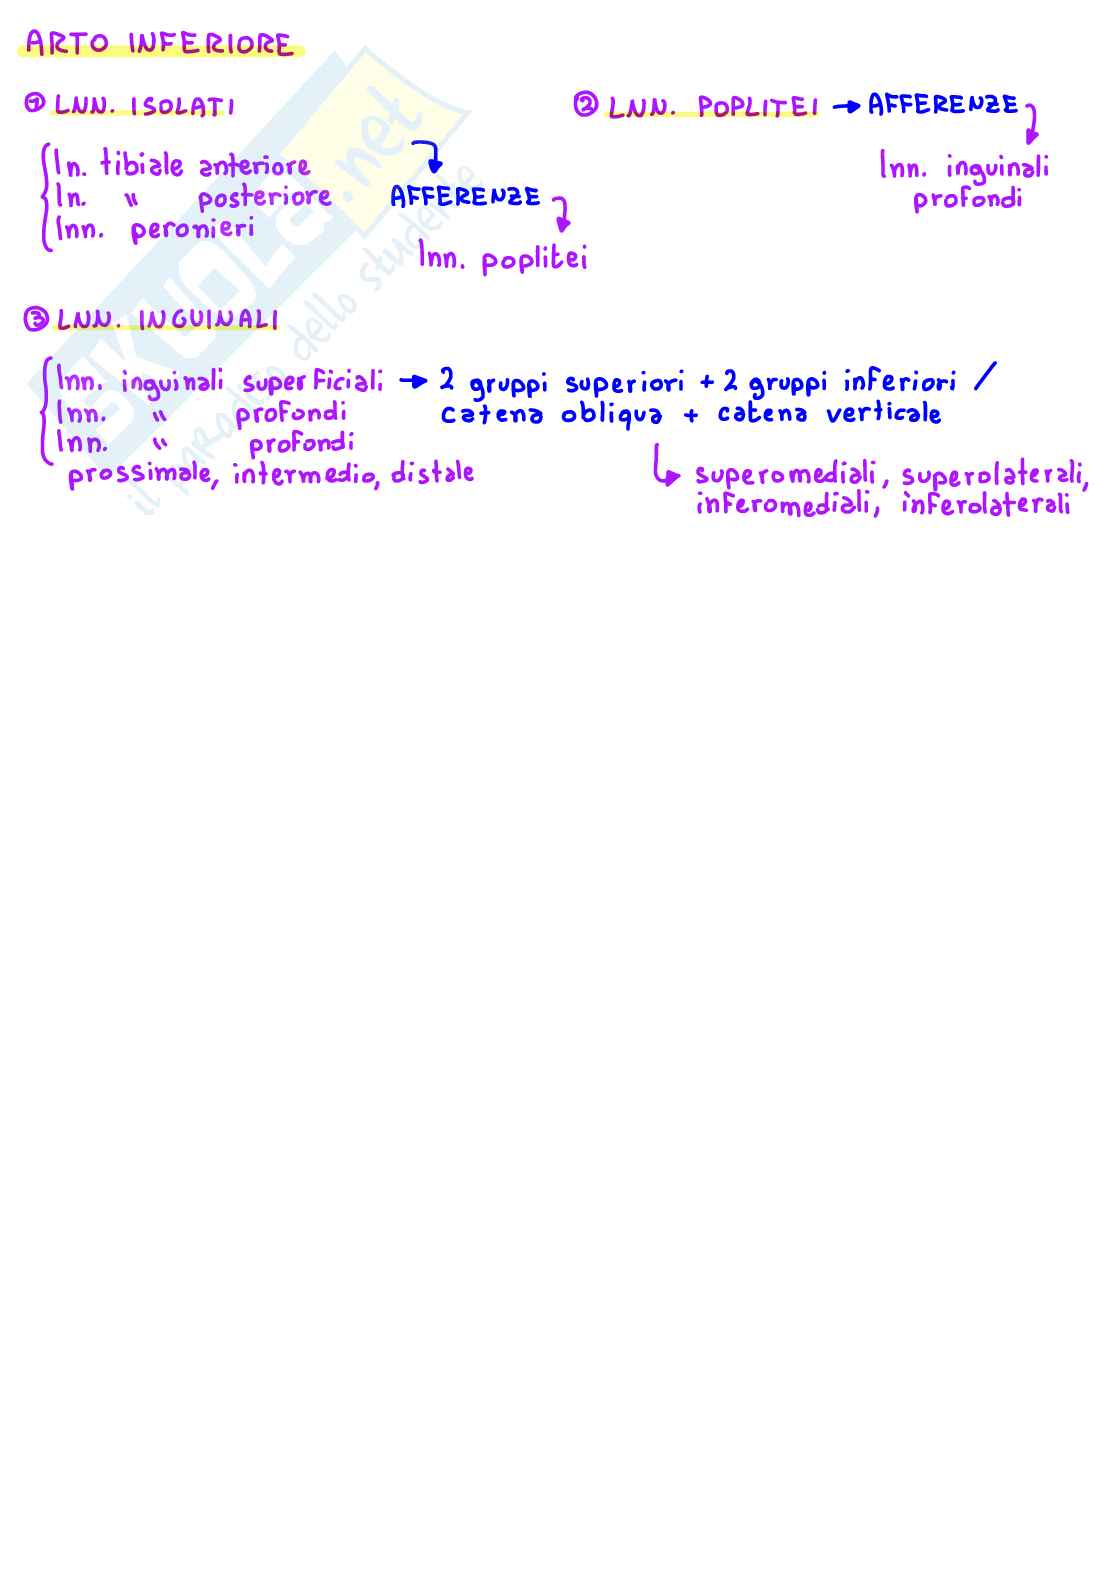 ARTO INFERIORE
① LNN. ISOLATI
ln. tibiale anteriore
ln. " posteriore
lnn. peronieri
AFFERENZE
lnn. poplitei
② LNN. POPLITEI → AFFERENZE
lnn. inguinali
profondi
③ LNN. INGUINALI
lnn. inguinali superficiali → 2 gruppi superiori + 2 gruppi inferiori /
catena obliqua + catena verticale
lnn. " profondi
lnn. " profondi
prossimale, intermedio, distale
superomediali, superolaterali,
inferomediali, inferolaterali
SKUOLA.net
il paradiso dello studente